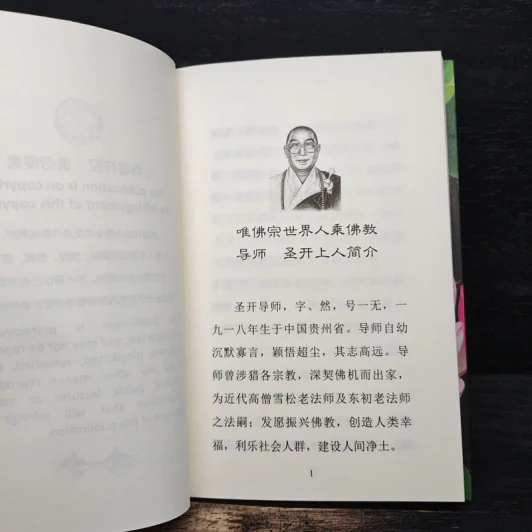 唯佛宗世界人乘佛教
导师 圣开上人简介
圣开导师，字、然，号一无，一
九一八年生于中国贵州省。导师自幼
沉默寡言，颖悟超尘，其志高远。导
师曾涉猎各宗教，深契佛机而出家，
为近代高僧雪松老法师及东初老法师
之法嗣；发愿振兴佛教，创造人类幸
福，利乐社会人群，建设人间净土。
1